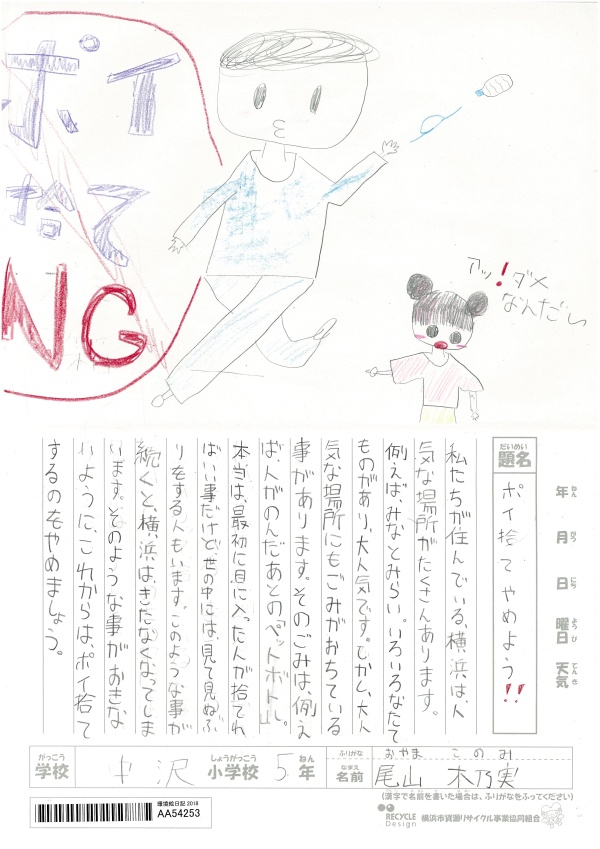 ポイ
捨て
NG
アッ!ダメ
なんだし
年ねん
月がつ
日にち
曜日ようび
天気てんき
だいめい
題名
ポイ捨てやめよう!!
私たちが住んでいる、横浜は、人
気な場所がたくさんあります。
例えば、みなとみらい。いろいろなたて
ものがあり、大人気です。しかし、大人
気な場所にもごみがおちている
事があります。そのごみは、例え
ば、人がのんだあとのペットボトル。
本当は、最初に目に入った人が捨てれ
ばいい事だけど、世の中には、見て見ぬふ
りをする人もいます。このような事が
続くと、横浜は、きたなくなってしま
います。そのような事がおきな
いように、これからは、ポイ捨て
するのをやめましょう。
がっこう しょうがっこう ねん ふりがな おやま このみ
学校 中沢 小学校 5年 なまえ 名前 尾山 木乃実
(漢字で名前を書いた場合は、ふりがなをふってください)
環境絵日記 2018
AA54253
RECYCLE Design 横浜市資源リサイクル事業協同組合